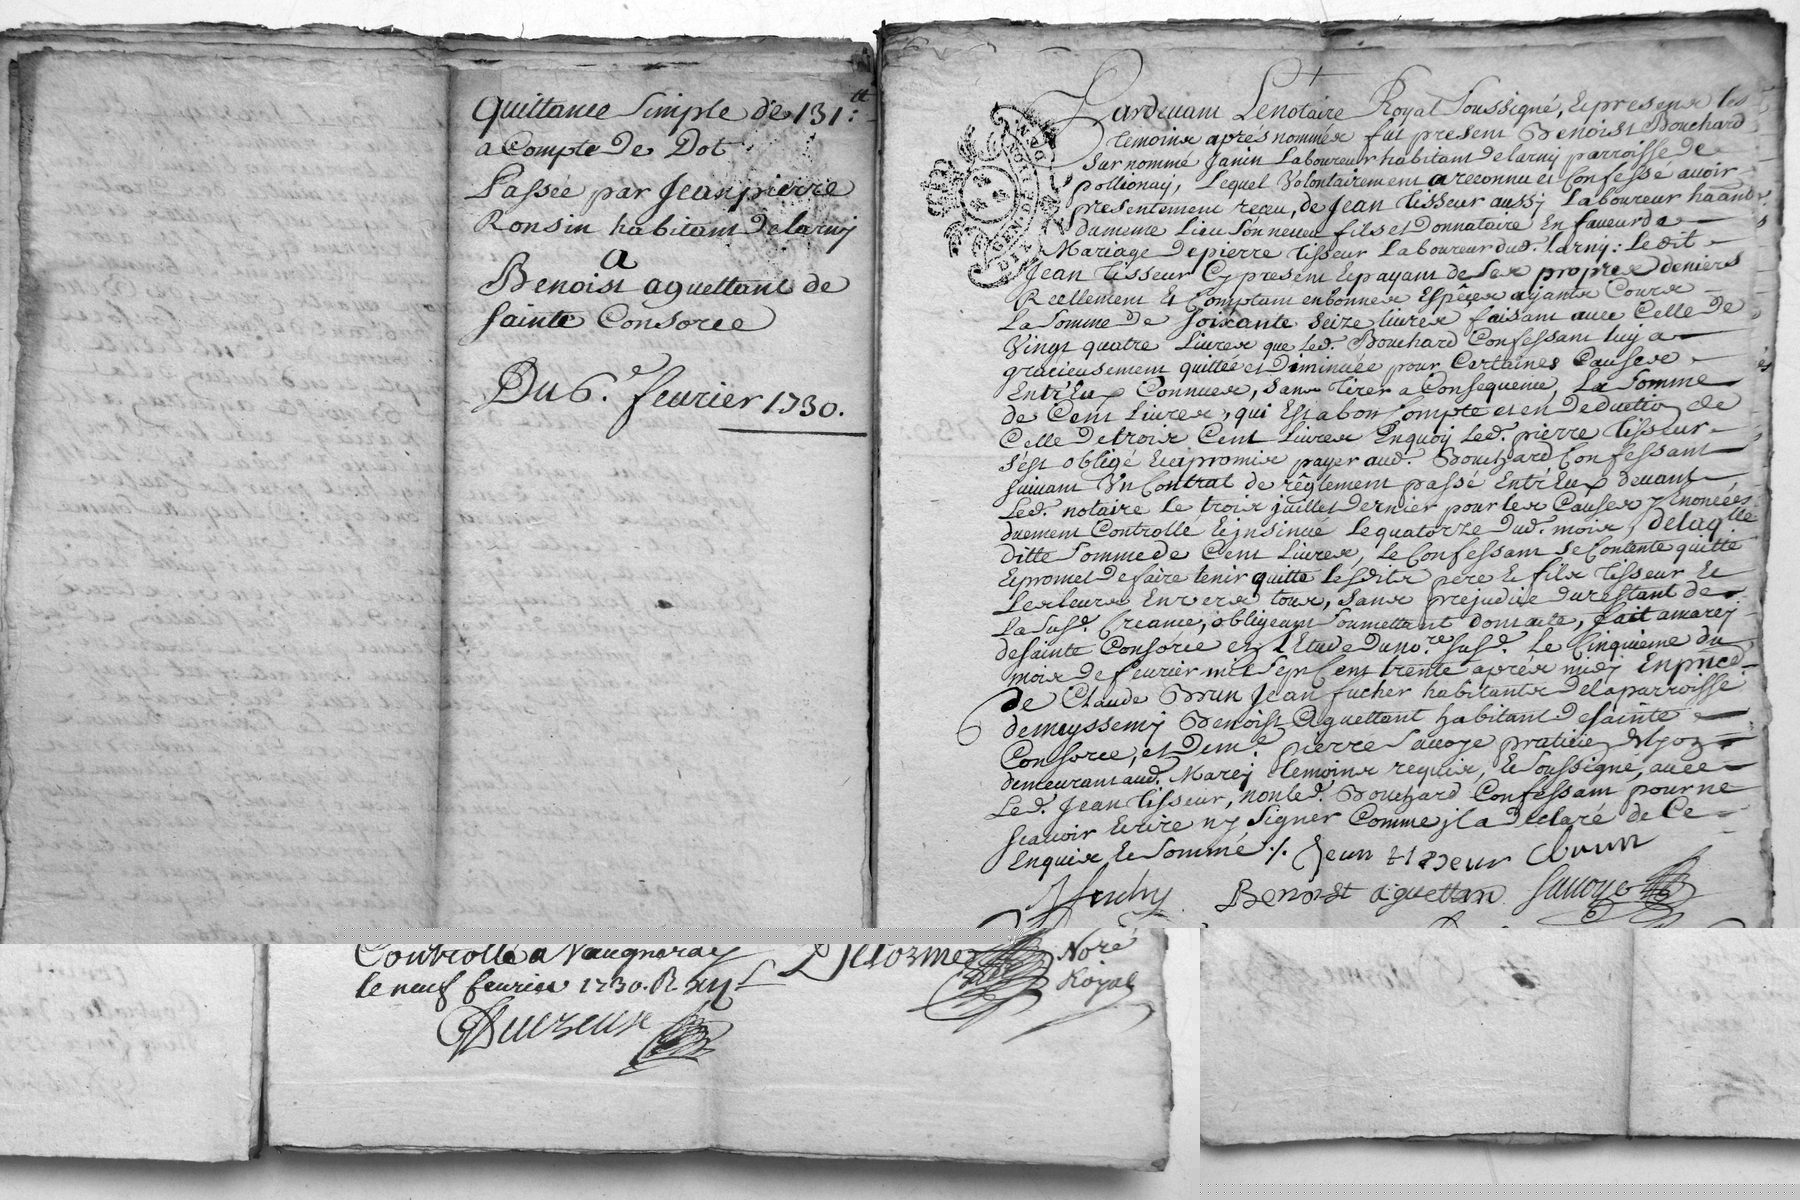 Quittance Simple de 131:tt
a Compte De Dot
Passée par Jean pierre
Ronsin habitant De larny
A
Benoist aguettant de
sainte Consorce
Du 6.e feurier 1730.
Pardeuant Le notaire Royal Soussigné, Et presens les
temoins aprés nommés fut present Benoist Bouchard
Surnommé Janin Laboureur habitant de larny parroisse de
pollionay, Lequel Volontairement a reconnu et Confessé auoir
presentement receu, de Jean tisseur aussy Laboureur haant
du meme Lieu Son neueu fils et Donnataire En faueur de
Mariage De pierre tisseur Laboureur dud. larny: Le dit
Jean tisseur Cy present Et payant de Ses propres deniers
Reellement Et Comptant en bonnes Espéces ayants Cours
La Somme De Soixante Seize liures faisant auec Celle De
Vingt quatre Liures que Led. Bouchard Confessant luy a
gracieusement quittée et Diminuée pour Certaines Causes
Entr'Eux Connues, Sans tirer a Consequence, La Somme
de Cent Liures, qui Est a bon Compte et en Deduction De
Celle De trois Cent Liures Enquoy Led. pierre tisseur
s'est obligé Et promis payer aud. Bouchard Confessant
suiuant Vn Contrat de réglement passé Entr'Eux deuant
Led. notaire Le trois juillet Dernier pour les Causes y Enoncées
duement Controllé Et jnsinué Le quatorze Dud. mois, De laqlle
ditte Somme de Cent Liures, Le Confessant se Contente quitte
Et promet De faire tenir quitte lesdits pere Et fils tisseur Et
Les leurs Enuers tous, Sans prejudice Du restant de
La Susd. Creance, obligeant Soumettant dont acte, fait a marcy
de sainte Consorce en L'Etude Du no.re Susd. Le Cinquieme du
mois De feurier mil Sept Cent trente aprés midy En pnce
De Claude Brun Jean fucher habitants De la parroisse
de meyssemy Benoist Aguettant habitant De sainte
Consorce, et Dem.e pierre Sauoye praticien De lyon
demeurant aud. Marcy temoins requis, Et Soussigné, auec
Led. Jean tisseur, non led. Bouchard Confessant pour ne
scauoir Ecrire ny Signer Comme jl a Declaré de Ce
Enquis Et Sommé ./. Jean tisseur Brun
Benoist aguettan Sauoye
Controllé a Vaugneray Delorme Nore
le neuf feurier 1730. R Royal